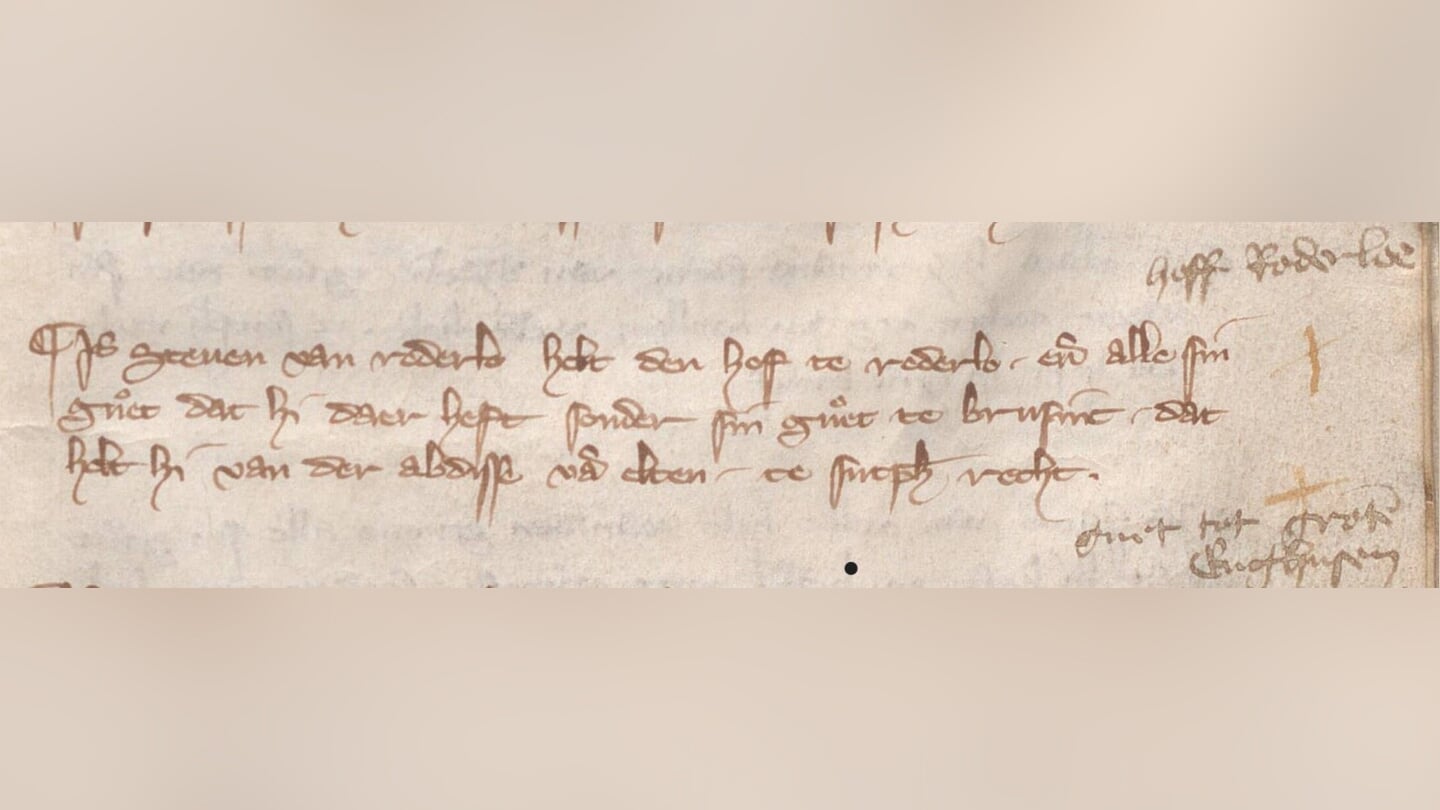 hoff Roderloe
¶ Js steuen van roderlo helt den hoff te roderlo · en̄ alle sin
guͦet dat hi daer heft sonder sin guͦet te brusinc · dat
helt hi van der abdisse vā elten · te sutph̄ recht .
guet tot grotē